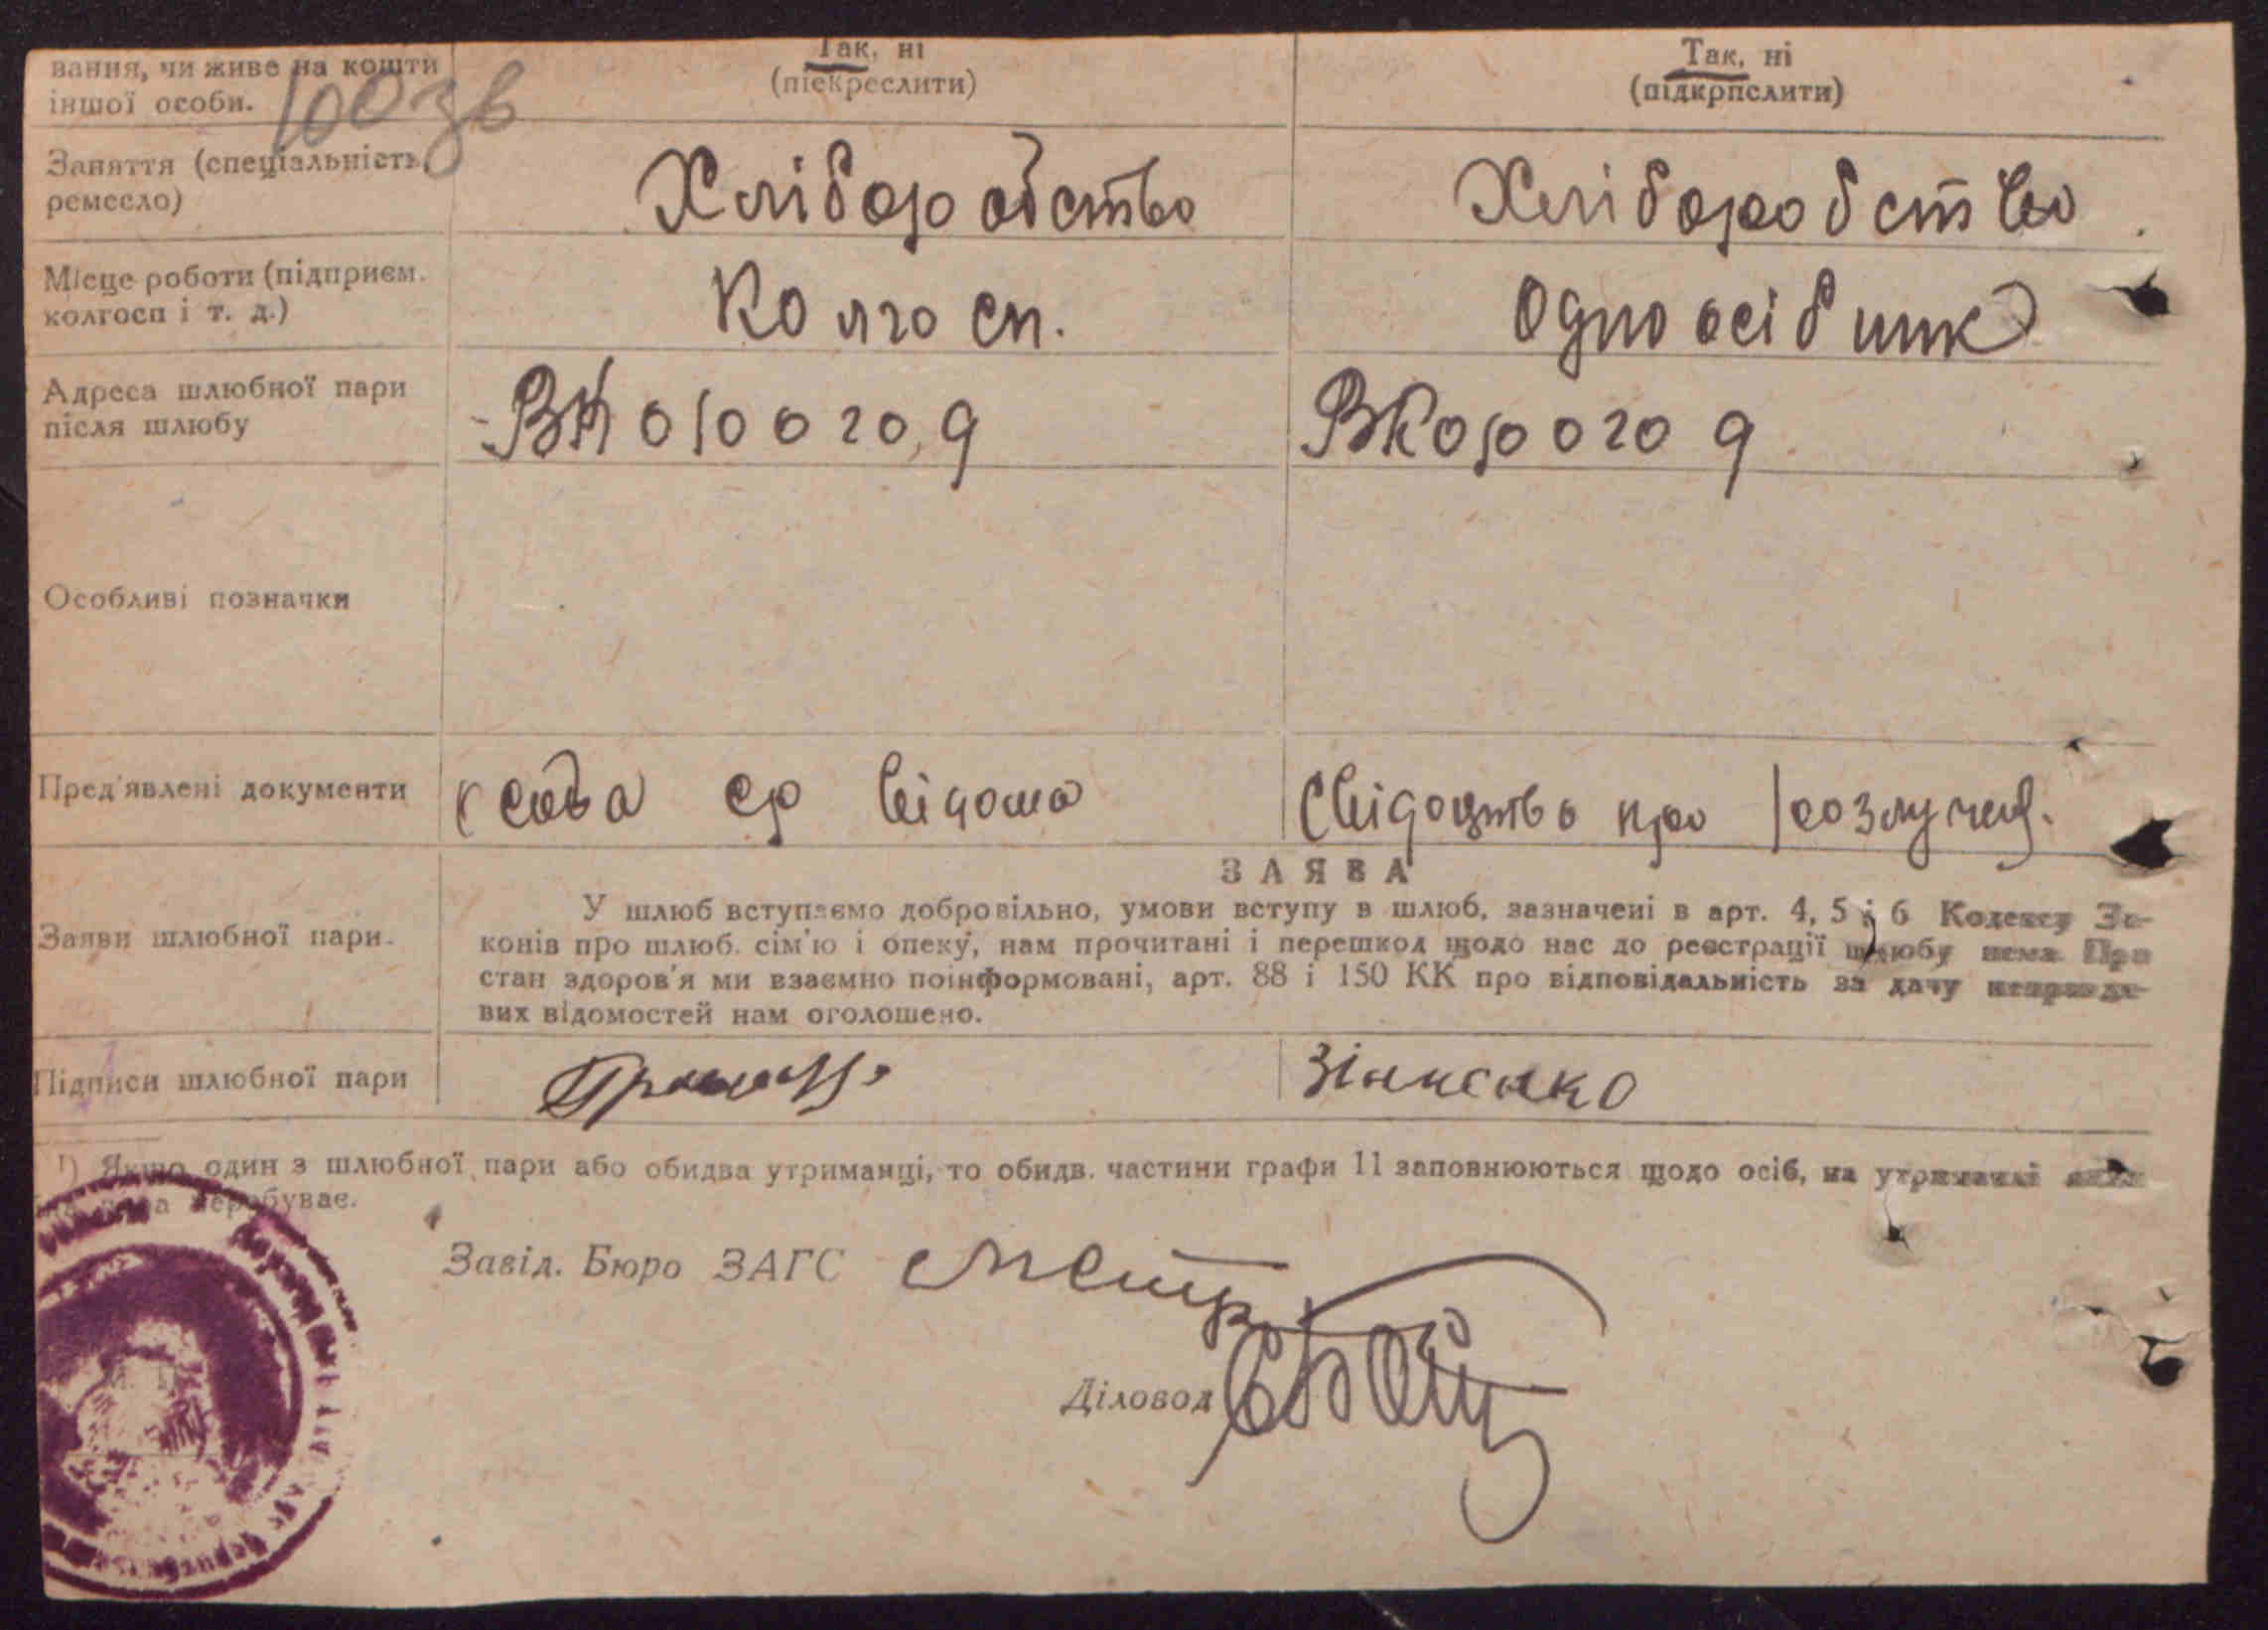 вання, чи живе на кошти
іншої особи.
Так, ні
(піекреслити)
Так, ні
(підкрпслити)
Заняття (спеціальність,
ремесло)
Хліборобство
Хліборобство
Місце роботи (підприєм.
колгосп і т. д.)
Колгосп.
Одноосібник
Адреса шлюбної пари
після шлюбу
Особливі позначки
Пред'явлені документи
особа
Свідоцтво про розлучен.
ЗАЯВА
Заяви шлюбної пари.
У шлюб вступаємо добровільно, умови вступу в шлюб, зазначені в арт. 4, 5 і 6 Кодексу За-
конів про шлюб. сім'ю і опеку, нам прочитані і перешкод щодо нас до реєстрації шлюбу нема Про
стан здоров'я ми взаємно поінформовані, арт. 88 і 150 КК про відповідальність за дачу неправди-
вих відомостей нам оголошено.
Підписи шлюбної пари
Зінченко
1) Якщо один з шлюбної пари або обидва утриманці, то обидв. частини графи 11 заповнюються щодо осіб, на утриманні яких
пара перебуває.
Завід. Бюро ЗАГС
Діловод